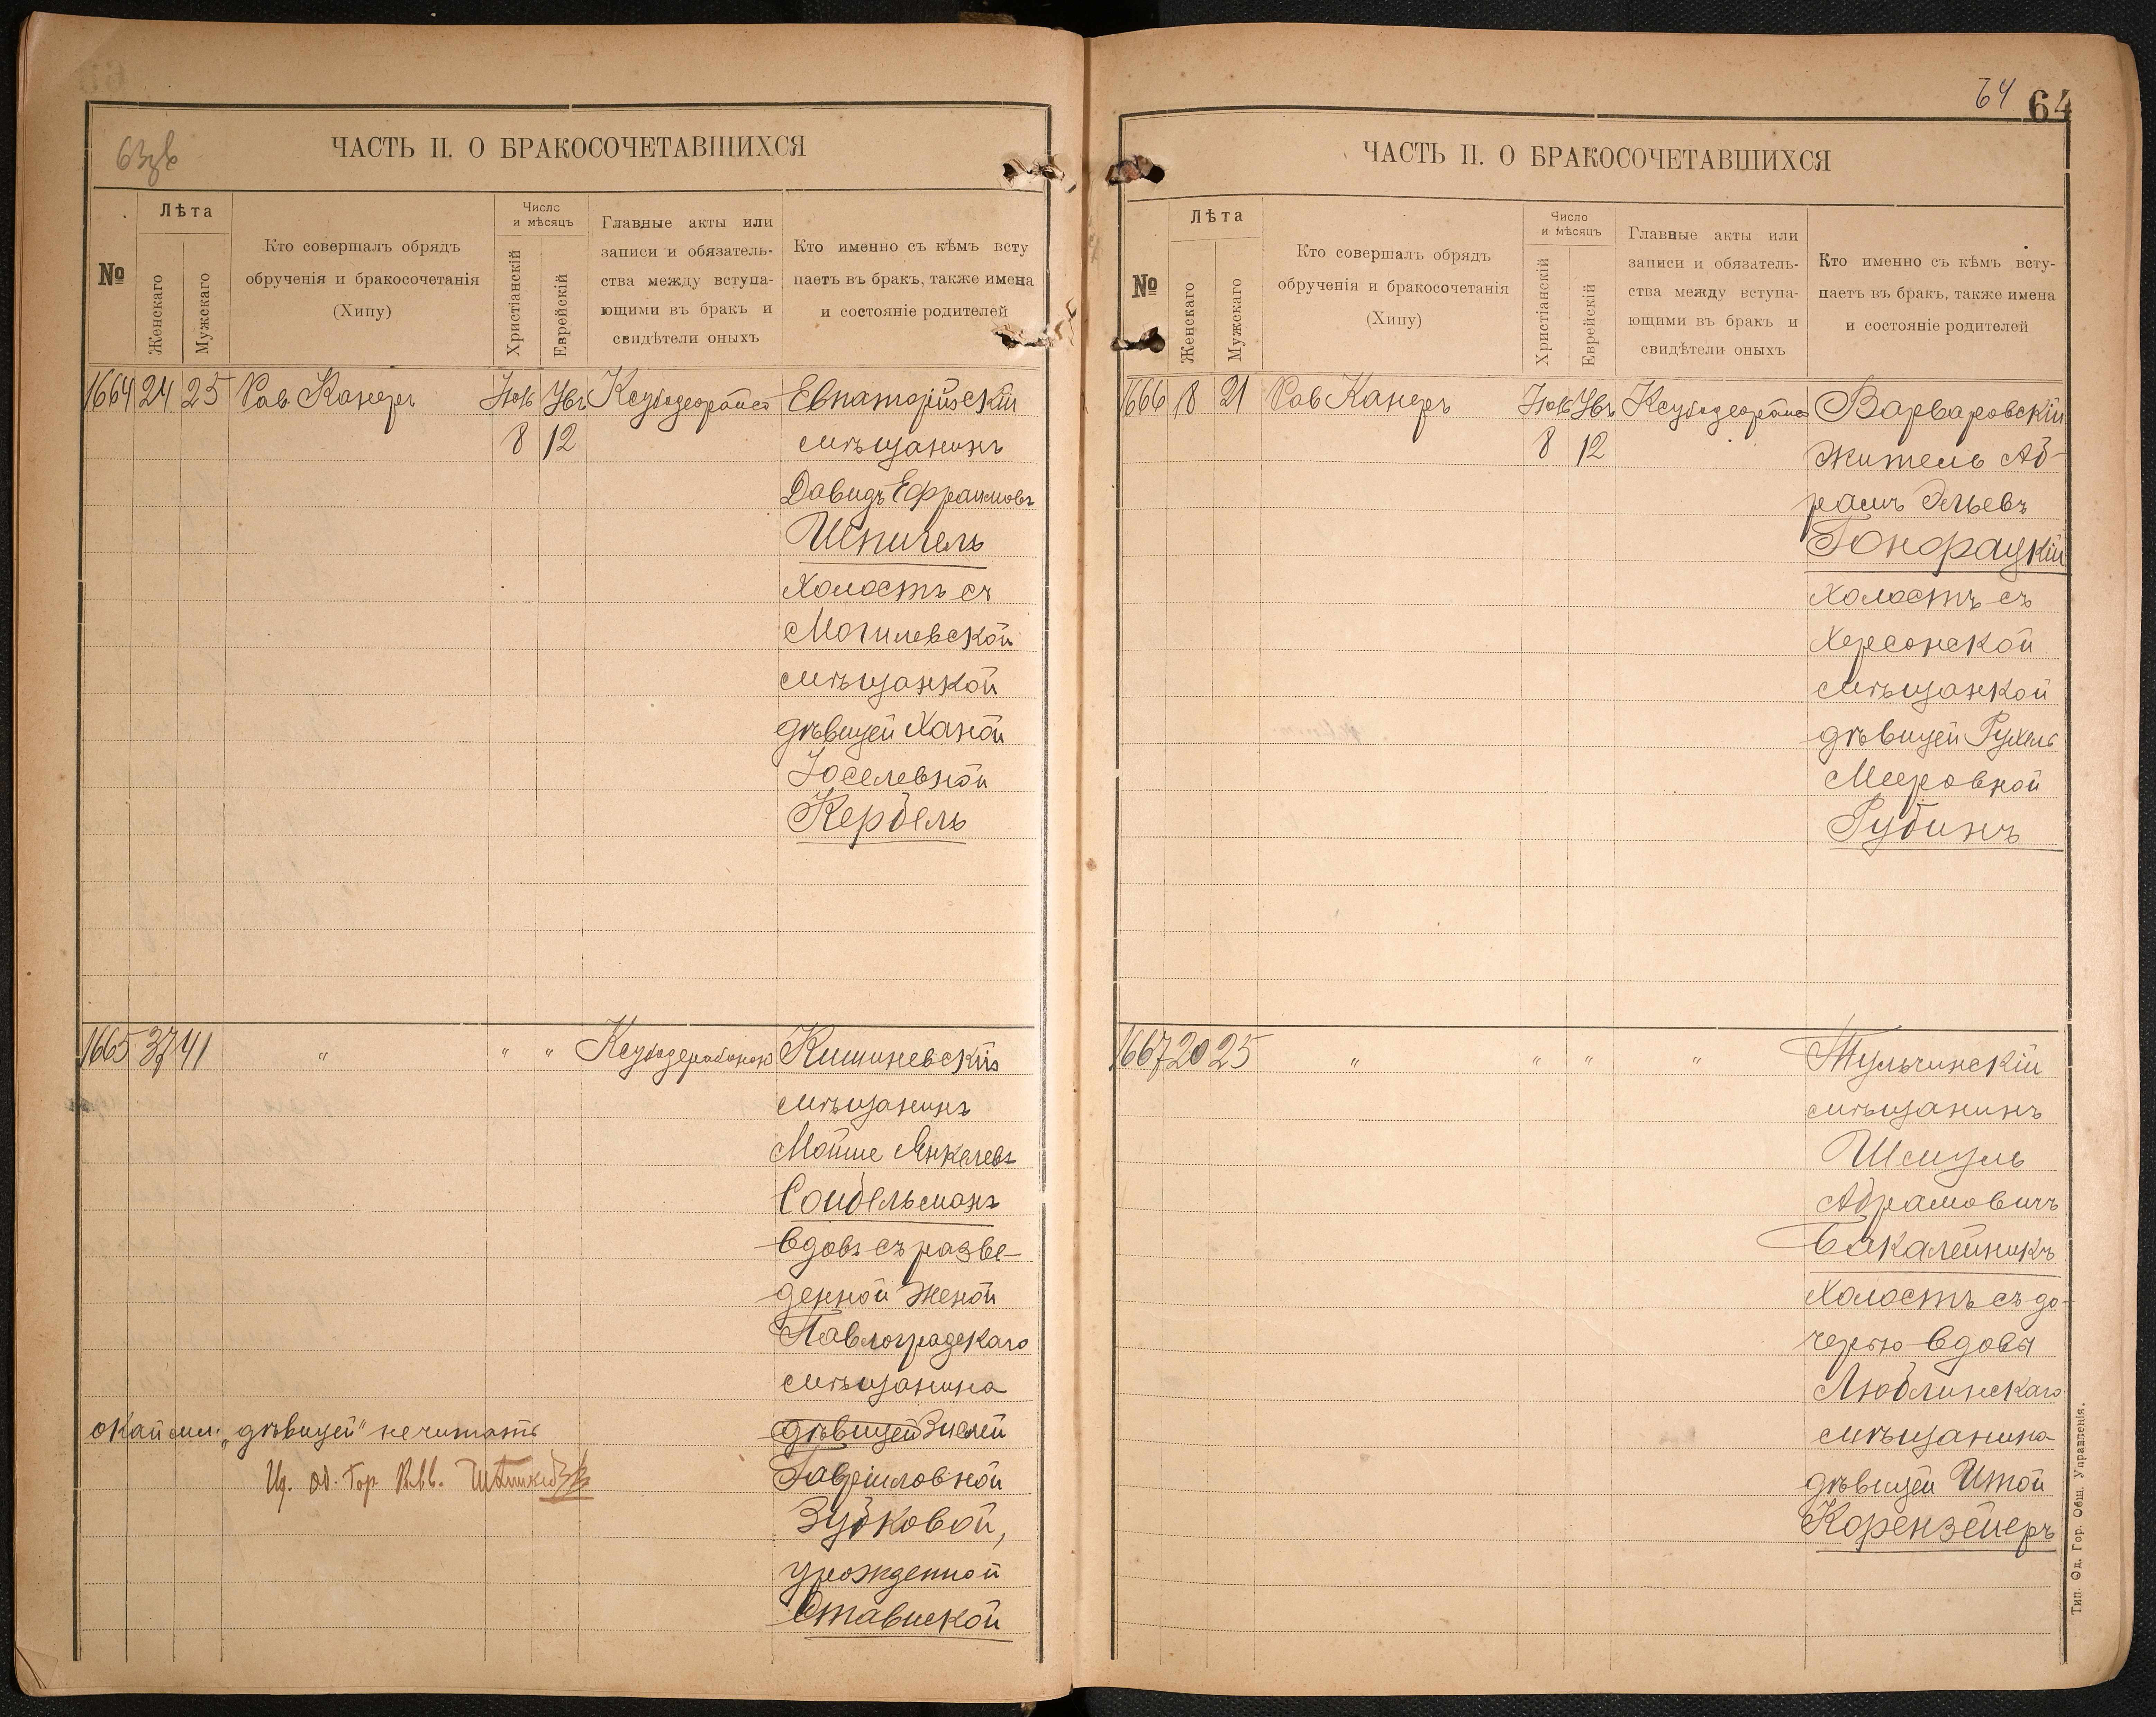 63зв
ЧАСТЬ II. О БРАКОСОЧЕТАВШИХСЯ
№
Лѣта
Женскаго
Мужскаго
Кто совершалъ обрядъ
обрученія и бракосочетанія
(Хипу)
Число
и мѣсяцъ
Христіанскій
Еврейскій
Главные акты или
записи и обязатель-
ства между вступа-
ющими въ бракъ и
свидѣтели оныхъ
Кто именно съ кѣмъ всту
паетъ въ бракъ, также имена
и состояніе родителей
1664 24 25 Рав Канеръ
8 12
Евпаторійскій
мѣщанинъ
Давидъ Ефраимовъ
Шпигель
холостъ съ
Могилевской
мѣщанкой
дѣвицей Ханой
Іоселевной
Кербель
1665 37 41 " " "
Кишиневскій
мѣщанинъ
Мойше Янкелевъ
Сойбельманъ
вдовъ съ разве-
денной женой
Павлоградскаго
мѣщанина
дѣвицей Зислей
Гавріиловной
Зубковой,
урожденной
Ставиской
окаймл. „дѣвицей" не читать
64
64
ЧАСТЬ II. О БРАКОСОЧЕТАВШИХСЯ
№
Лѣта
Женскаго
Мужскаго
Кто совершалъ обрядъ
обрученія и бракосочетанія
(Хипу)
Число
и мѣсяцъ
Христіанскій
Еврейскій
Главные акты или
записи и обязатель-
ства между вступа-
ющими въ бракъ и
свидѣтели оныхъ
Кто именно съ кѣмъ всту-
паетъ въ бракъ, также имена
и состояніе родителей
1666 18 21 Рав Канеръ
8 12
Варваровскій
житель Аб-
рамъ Эльевъ
Гонорацкій
холостъ съ
Херсонской
мѣщанкой
дѣвицей Рухель
Мееровной
Рубинъ
1667 20 25 " " " "
Тульчинскій
мѣщанинъ
Шмуль
Абрамовичъ
Бакалейникъ
холостъ съ до-
черью вдовы
Люблинскаго
мѣщанина
дѣвицей Итой
Корензейеръ
Тип. Од. Гор. Общ. Управленія.